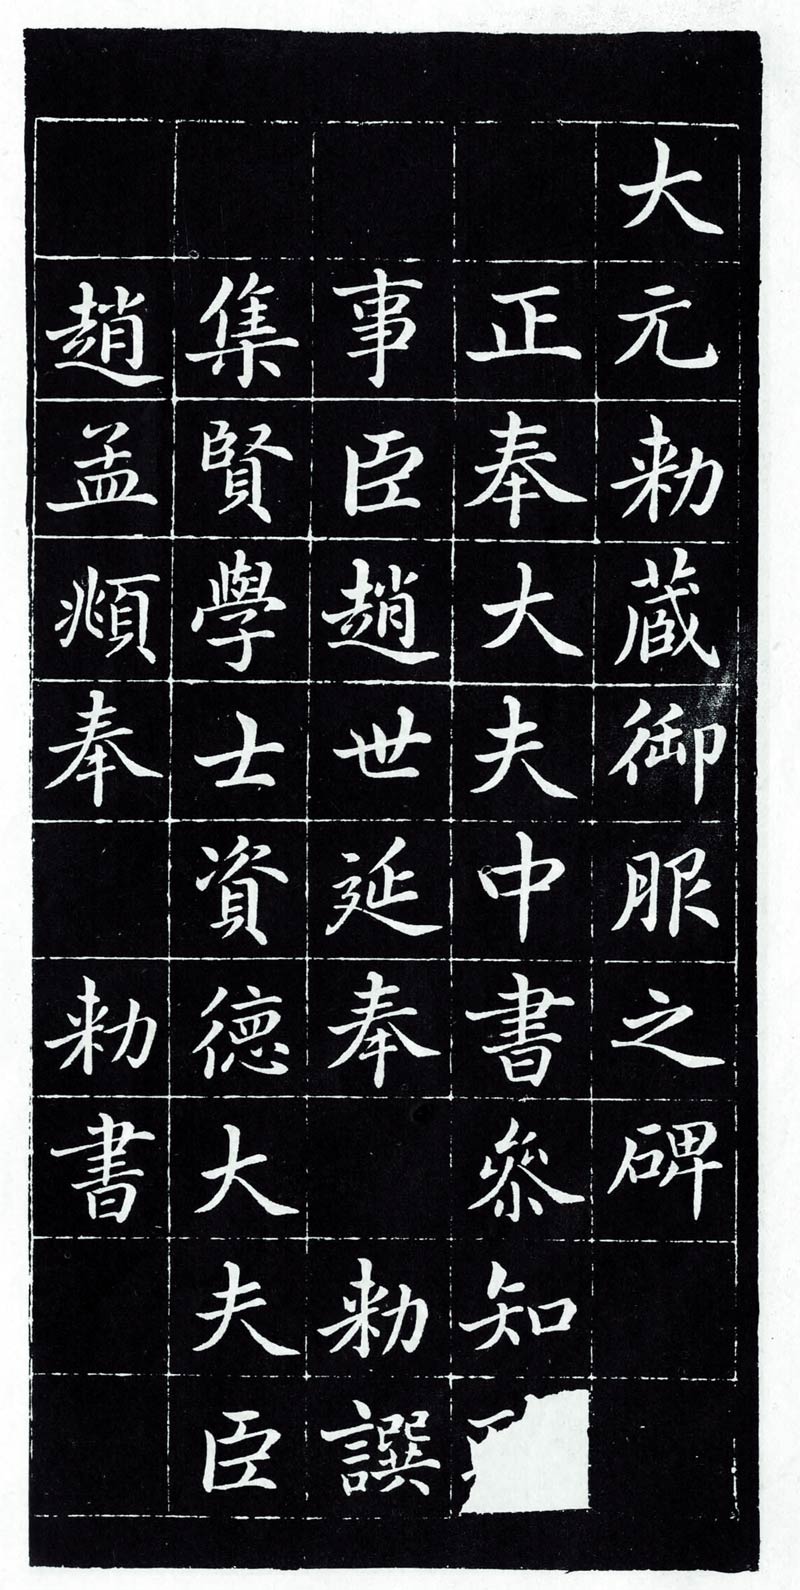 大元勅藏御服之碑
正奉大夫中書叅知
事臣趙世延奉勅譔
集賢學士資德大夫臣
趙孟頫奉勅書